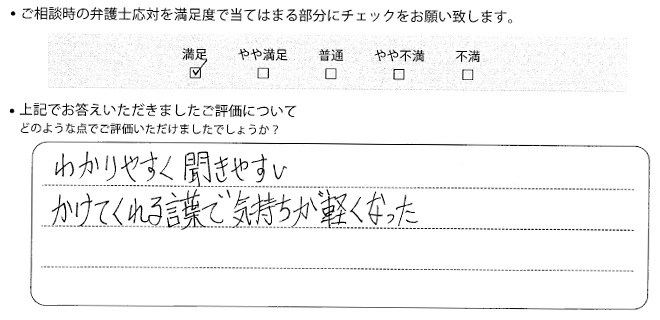 ・ご相談時の弁護士応対を満足度で当てはまる部分にチェックをお願い致します。
満足 やや満足 普通 やや不満 不満
☑ ☐ ☐ ☐ ☐
・上記でお答えいただきましたご評価について
どのような点でご評価いただけましたでしょうか？
わかりやすく聞きやすい
かけてくれる言葉で気持ちが軽くなった